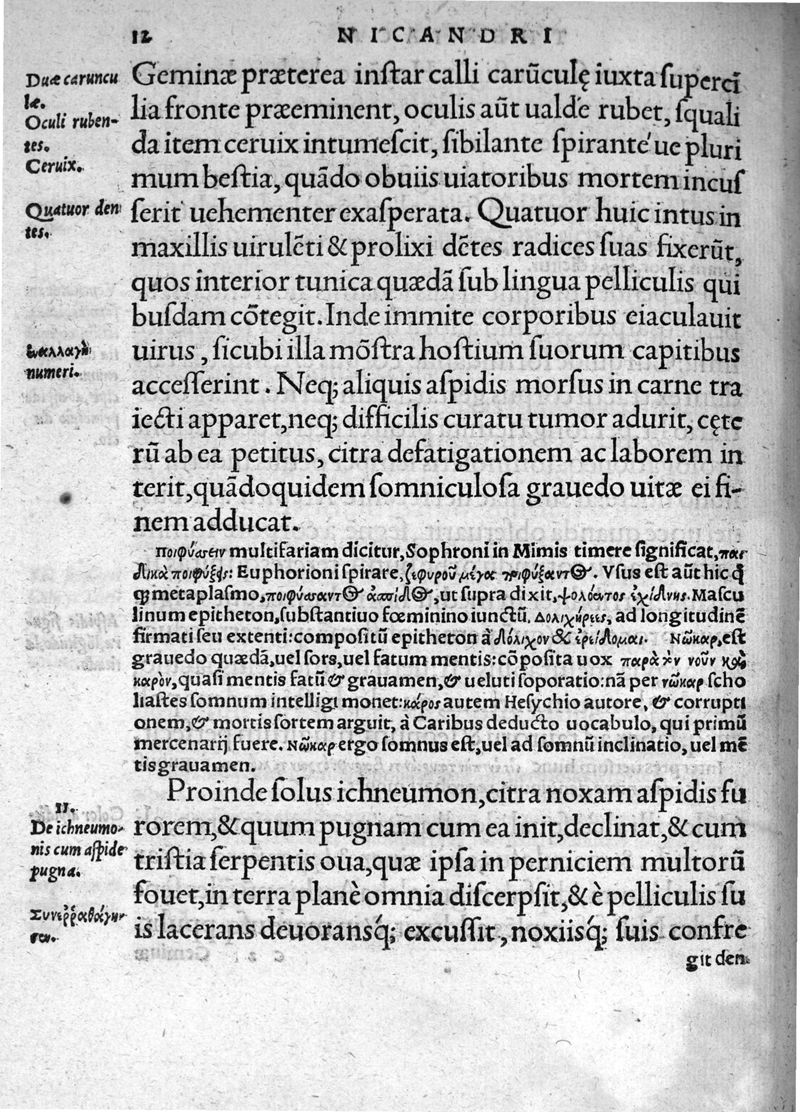 12 NICANDRI
Duæ caruncu
læ.
Oculi ruben-
tes.
Ceruix.
Quatuor den
tes.
ἐναλλαγὴ
numeri.
Geminæ præterea inſtar calli carūculę iuxta ſuperci
lia fronte præeminent, oculis aūt ualde rubet, ſquali
da item ceruix intumeſcit, ſibilante ſpirante´ue pluri
mum beſtia, quādo obuiis uiatoribus mortem incuſ
ſerit uehementer exaſperata. Quatuor huic intus in
maxillis uirulēti & prolixi dētes radices ſuas fixerūt,
quos interior tunica quædā ſub lingua pelliculis qui
buſdam cōtegit. Inde immite corporibus eiaculauit
uirus, ſicubi illa mōſtra hoſtium ſuorum capitibus
acceſſerint. Neq; aliquis aſpidis morſus in carne tra
iecti apparet, neq; difficilis curatu tumor adurit, cęte
rū ab ea petitus, citra defatigationem ac laborem in
terit, quādoquidem ſomniculoſa grauedo uitæ ei fi-
nem adducat.
ποιφύσσειν multifariam dicitur, Sophroni in Mimis timere ſignificat, παι
δικὰ ποιφύξῃς: Euphorioni ſpirare, ζεφυροῦ μέγα ποιφύξαντος. Vſus eſt aūt hic q̄
q; metaplaſmo, ποιφύσσαντος ἀσπίδος, ut ſupra dixit, ψολόεντος ἐχίδνης. Maſcu
linum epitheton, ſubſtantiuo fœminino iunctū. Δολιχήρεες, ad longitudinē
firmati ſeu extenti: compoſitū epitheton à δόλιχον & ἐρείδομαι. Νῶκαρ, eſt
grauedo quædā, uel ſors, uel fatum mentis: cōpoſita uox παρὰ τὸν νοῦν καὶ
καρὸν, quaſi mentis fatū & grauamen, & ueluti ſoporatio: nā per νῶκαρ ſcho
liaſtes ſomnum intelligi monet: κάρος autem Heſychio autore, & corrupti
onem, & mortis ſortem arguit, à Caribus deducto uocabulo, qui primū
mercenarij fuere. Νῶκαρ ergo ſomnus eſt, uel ad ſomnū inclinatio, uel mē
tis grauamen.
11.
De ichneumo-
nis cum aſpide
pugna.
Proinde ſolus ichneumon, citra noxam aſpidis fu
rorem, & quum pugnam cum ea init, declinat, & cum
triſtia ſerpentis oua, quæ ipſa in perniciem multorū
fouet, in terra planè omnia diſcerpſit, & è pelliculis ſu
is lacerans deuoransq́; excuſſit, noxiisq́; ſuis confre
git den